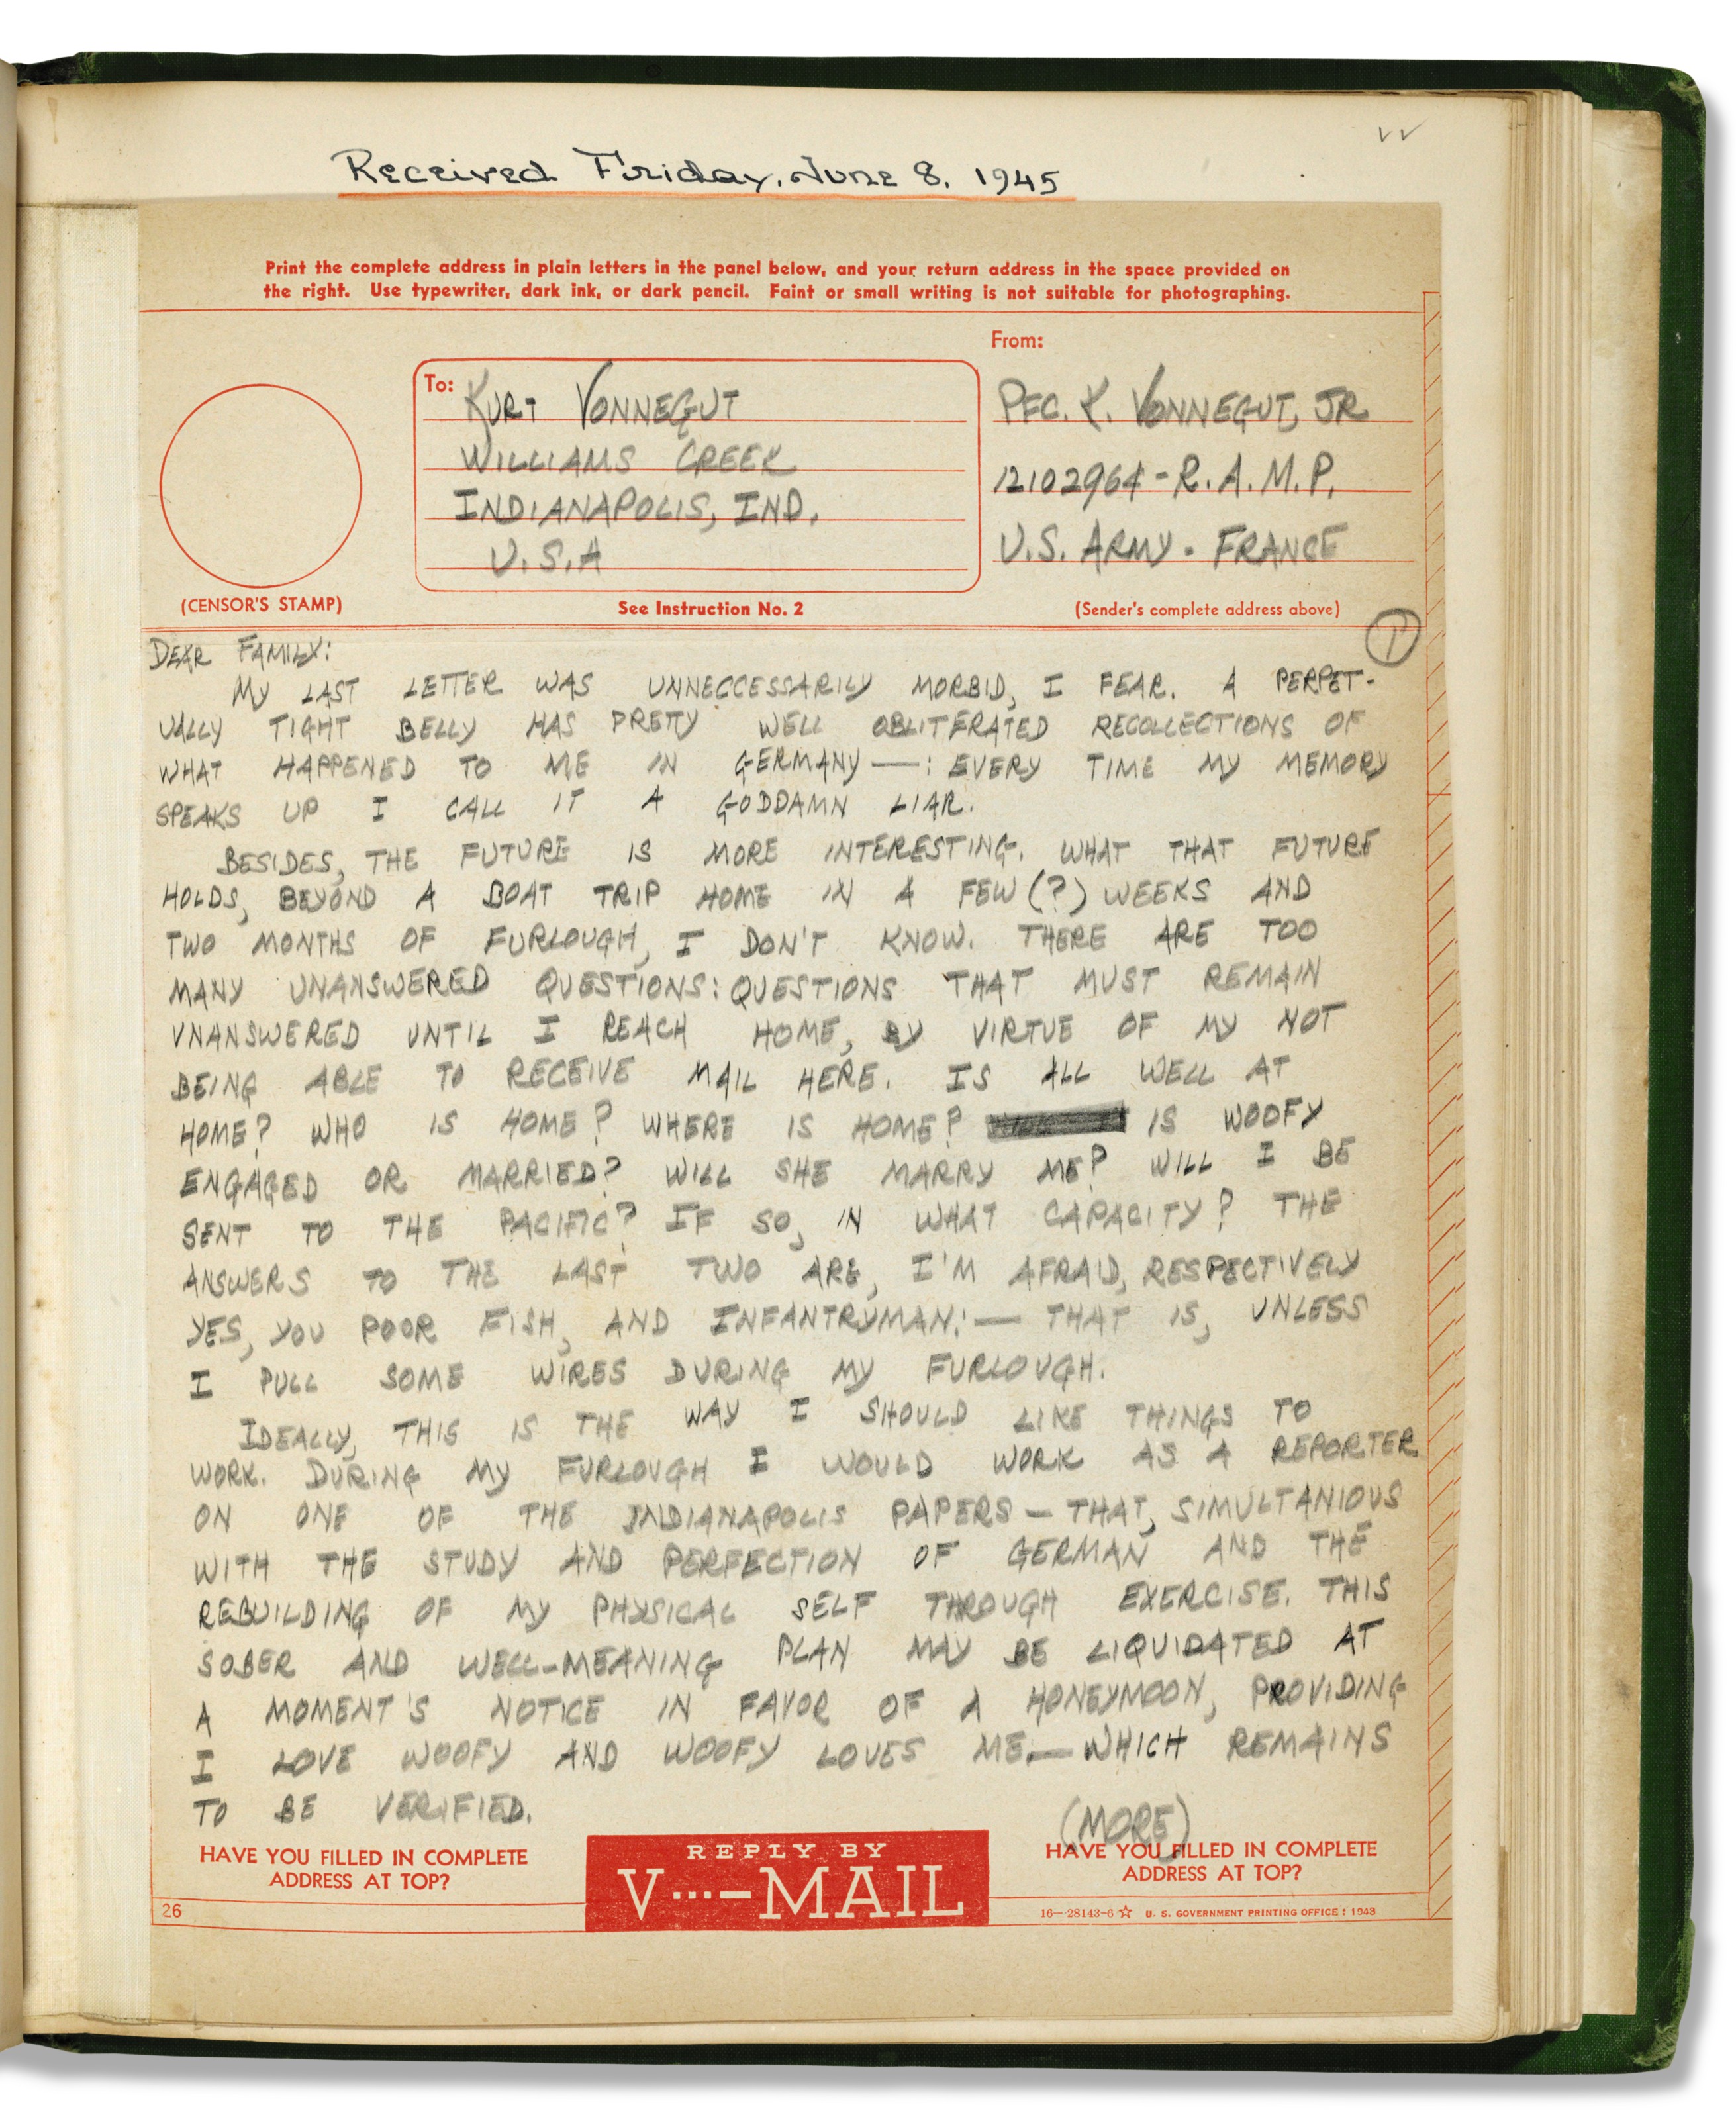 Received Friday, June 8, 1945
Print the complete address in plain letters in the panel below, and your return address in the space provided on
the right. Use typewriter, dark ink, or dark pencil. Faint or small writing is not suitable for photographing.
(CENSOR'S STAMP)
To: KURT VONNEGUT
WILLIAMS CREEK
INDIANAPOLIS, IND.
U.S.A
See Instruction No. 2
From:
PFC. K. VONNEGUT, JR
12102964-R.A.M.P.
U.S. ARMY - FRANCE
(Sender's complete address above)
1
DEAR FAMILY:
MY LAST LETTER WAS UNNECCESSARILY MORBID, I FEAR. A PERPET-
UALLY TIGHT BELLY HAS PRETTY WELL OBLITERATED RECOLLECTIONS OF
WHAT HAPPENED TO ME IN GERMANY—: EVERY TIME MY MEMORY
SPEAKS UP I CALL IT A GODDAMN LIAR.
BESIDES, THE FUTURE IS MORE INTERESTING. WHAT THAT FUTURE
HOLDS, BEYOND A BOAT TRIP HOME IN A FEW (?) WEEKS AND
TWO MONTHS OF FURLOUGH, I DON'T KNOW. THERE ARE TOO
MANY UNANSWERED QUESTIONS: QUESTIONS THAT MUST REMAIN
UNANSWERED UNTIL I REACH HOME, BY VIRTUE OF MY NOT
BEING ABLE TO RECEIVE MAIL HERE. IS ALL WELL AT
HOME? WHO IS HOME? WHERE IS HOME? IS WOOFY
ENGAGED OR MARRIED? WILL SHE MARRY ME? WILL I BE
SENT TO THE PACIFIC? IF SO, IN WHAT CAPACITY? THE
ANSWERS TO THE LAST TWO ARE, I'M AFRAID, RESPECTIVELY
YES, YOU POOR FISH, AND INFANTRYMAN:— THAT IS, UNLESS
I PULL SOME WIRES DURING MY FURLOUGH.
IDEALLY, THIS IS THE WAY I SHOULD LIKE THINGS TO
WORK. DURING MY FURLOUGH I WOULD WORK AS A REPORTER
ON ONE OF THE INDIANAPOLIS PAPERS — THAT, SIMULTANIOUS
WITH THE STUDY AND PERFECTION OF GERMAN AND THE
REBUILDING OF MY PHYSICAL SELF THROUGH EXERCISE. THIS
SOBER AND WELL-MEANING PLAN MAY BE LIQUIDATED AT
A MOMENT'S NOTICE IN FAVOR OF A HONEYMOON, PROVIDING
I LOVE WOOFY AND WOOFY LOVES ME.— WHICH REMAINS
TO BE VERIFIED.
(MORE)
HAVE YOU FILLED IN COMPLETE
ADDRESS AT TOP?
REPLY BY
V···—MAIL
HAVE YOU FILLED IN COMPLETE
ADDRESS AT TOP?
26
16—28143-6 ☆ U. S. GOVERNMENT PRINTING OFFICE : 1943